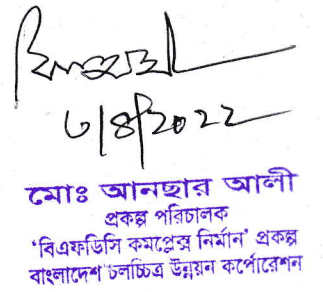 ৬/৪/২০২২
মোঃ আনছার আলী
প্রকল্প পরিচালক
'বিএফডিসি কমপ্লেক্স নির্মান' প্রকল্প
বাংলাদেশ চলচ্চিত্র উন্নয়ন কর্পোরেশন